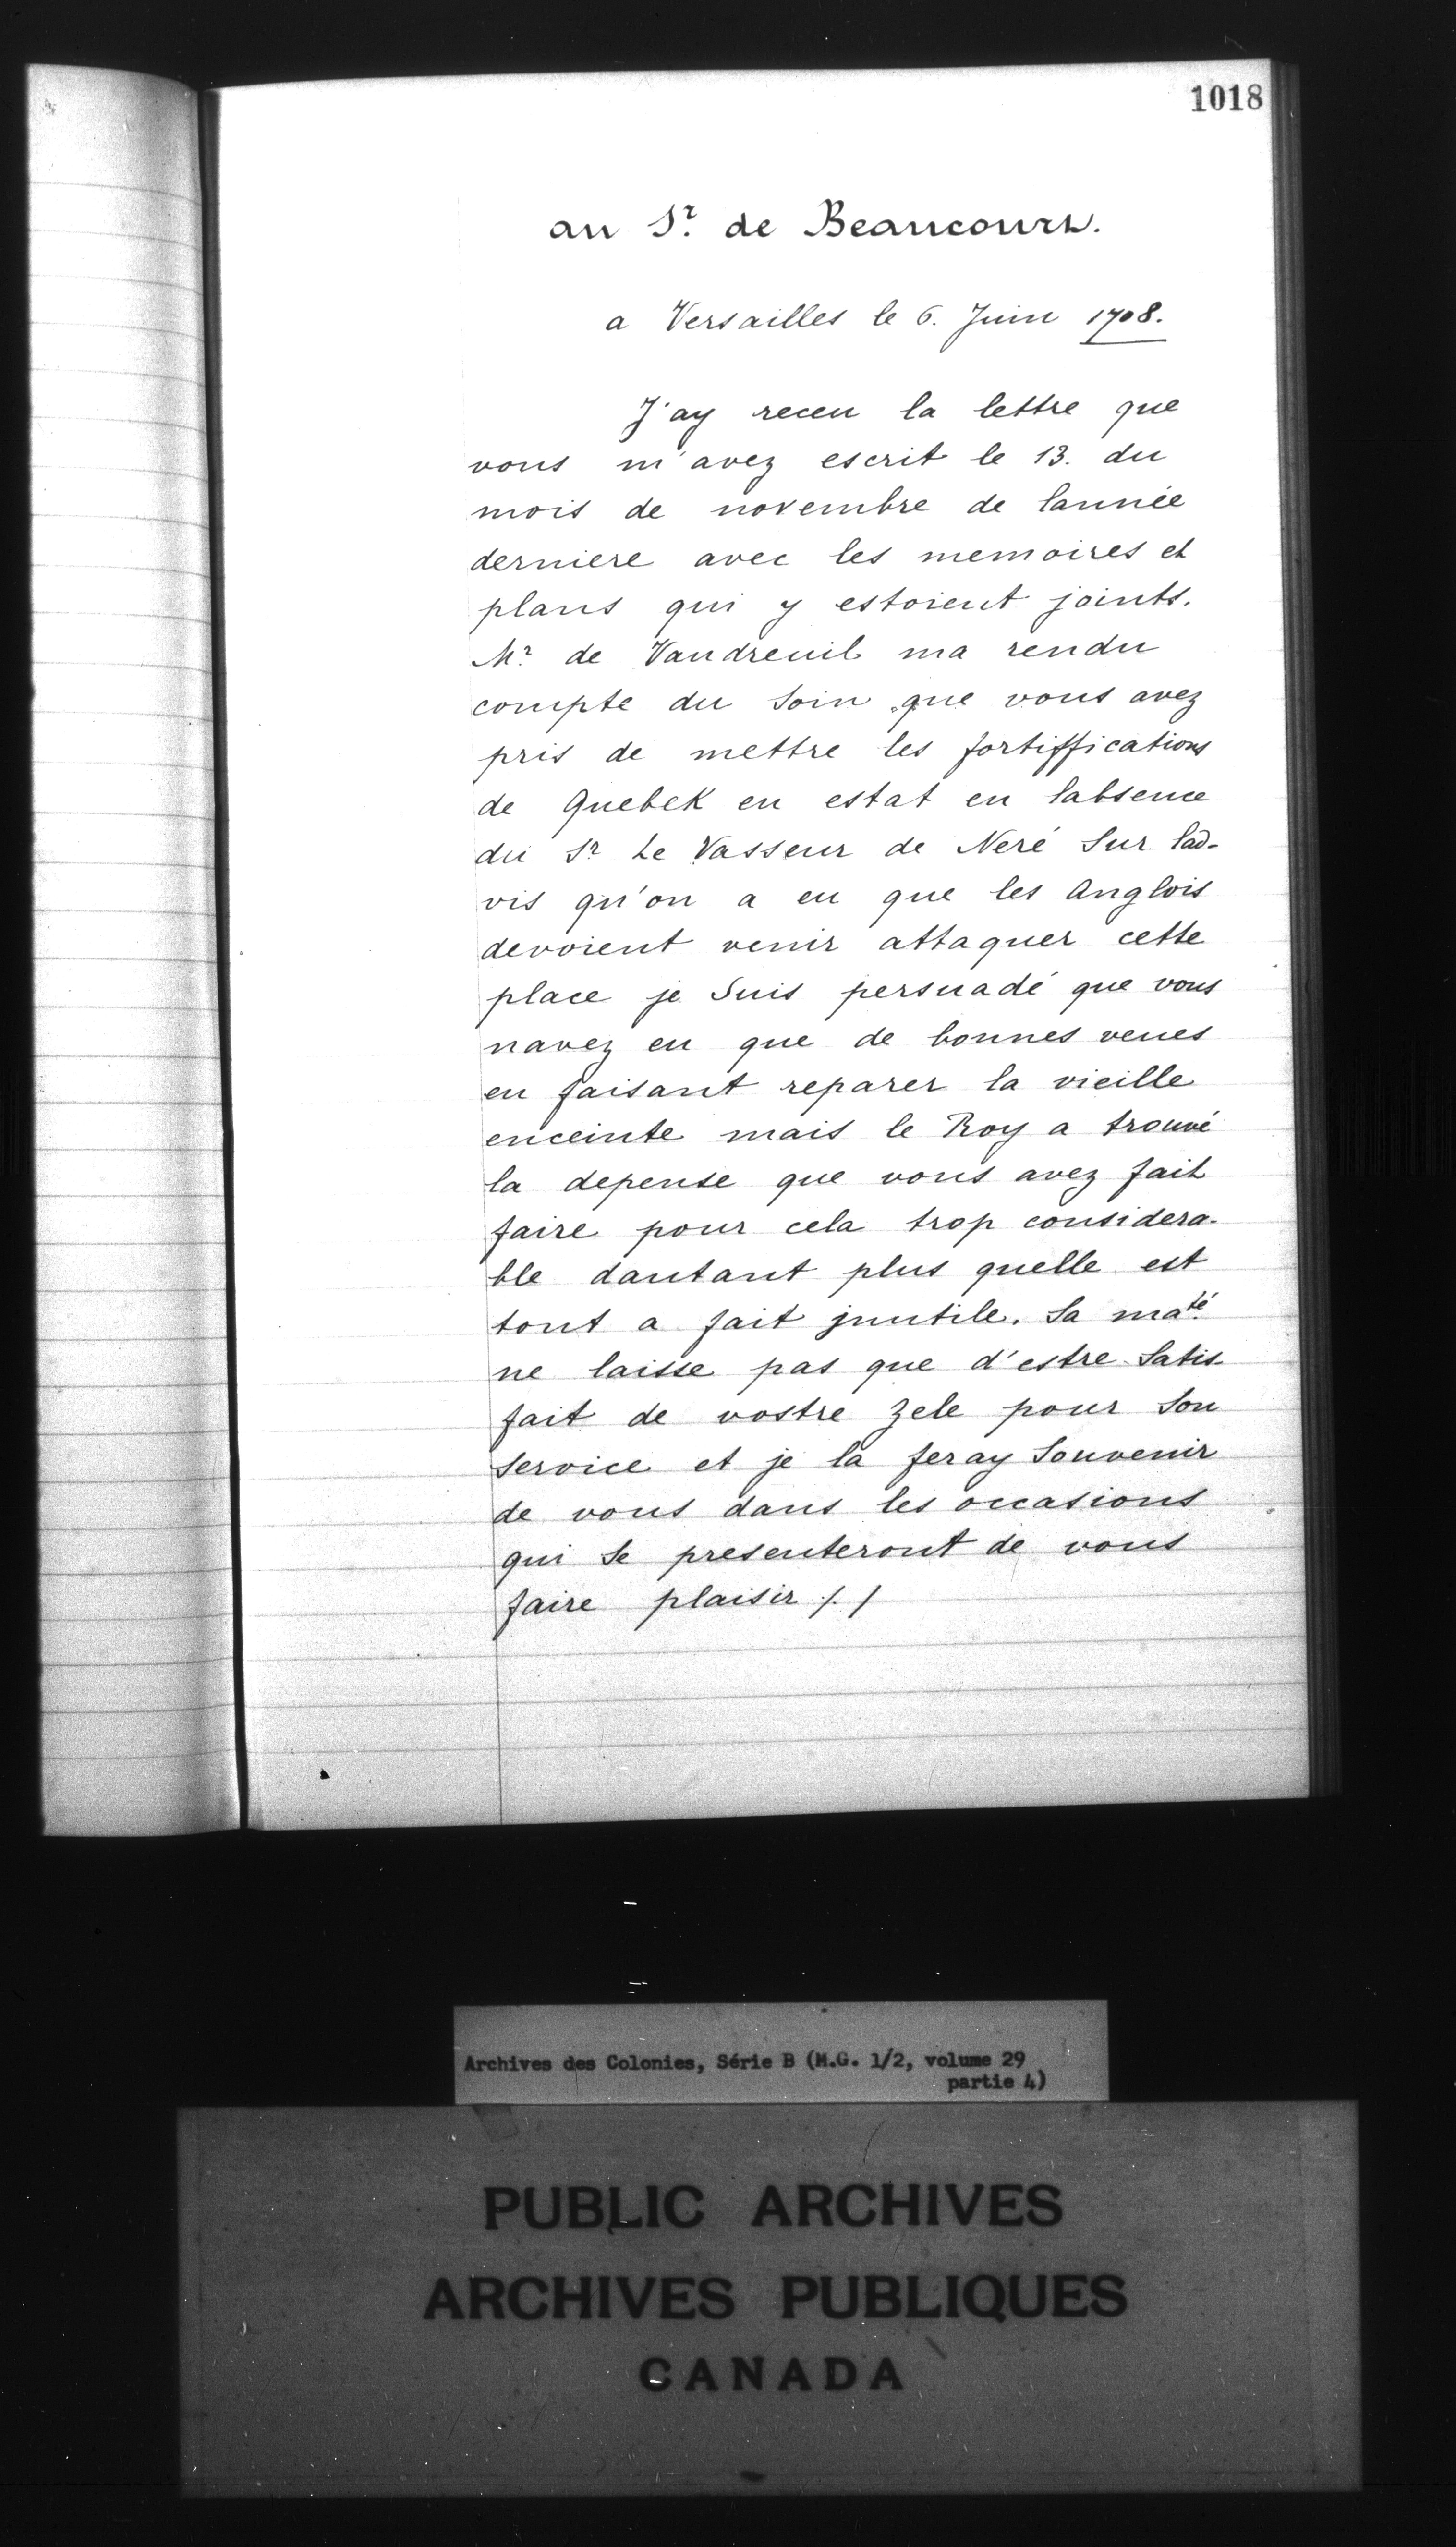 1018
au Sr. de Beaucourt.
a Versailles le 6. Juin 1708.
J'ay receu la lettre que
vous m'avez escrit le 13. du
mois de novembre de lannée
derniere avec les memoires et
plans qui y estoient joints.
Mr. de Vaudreuil ma rendu
compte du soin que vous avez
pris de mettre les fortiffications
de Quebek en estat en labsence
du Sr. Le Vasseur de Neré sur lad-
vis qu'on a eu que les anglois
devoient venir attaquer cette
place je suis persuadé que vous
navez eu que de bonnes veues
en faisant reparer la vieille
enceinte mais le Roy a trouvé
la depense que vous avez fait
faire pour cela trop considera-
ble dautant plus quelle est
tout a fait jnutile. Sa maté.
ne laisse pas que d'estre satis-
fait de vostre zele pour son
service et je la feray souvenir
de vous dans les occasions
qui se presenteront de vous
faire plaisir /. /
Archives des Colonies, Série B (M.G. 1/2, volume 29
partie 4)
PUBLIC ARCHIVES
ARCHIVES PUBLIQUES
CANADA